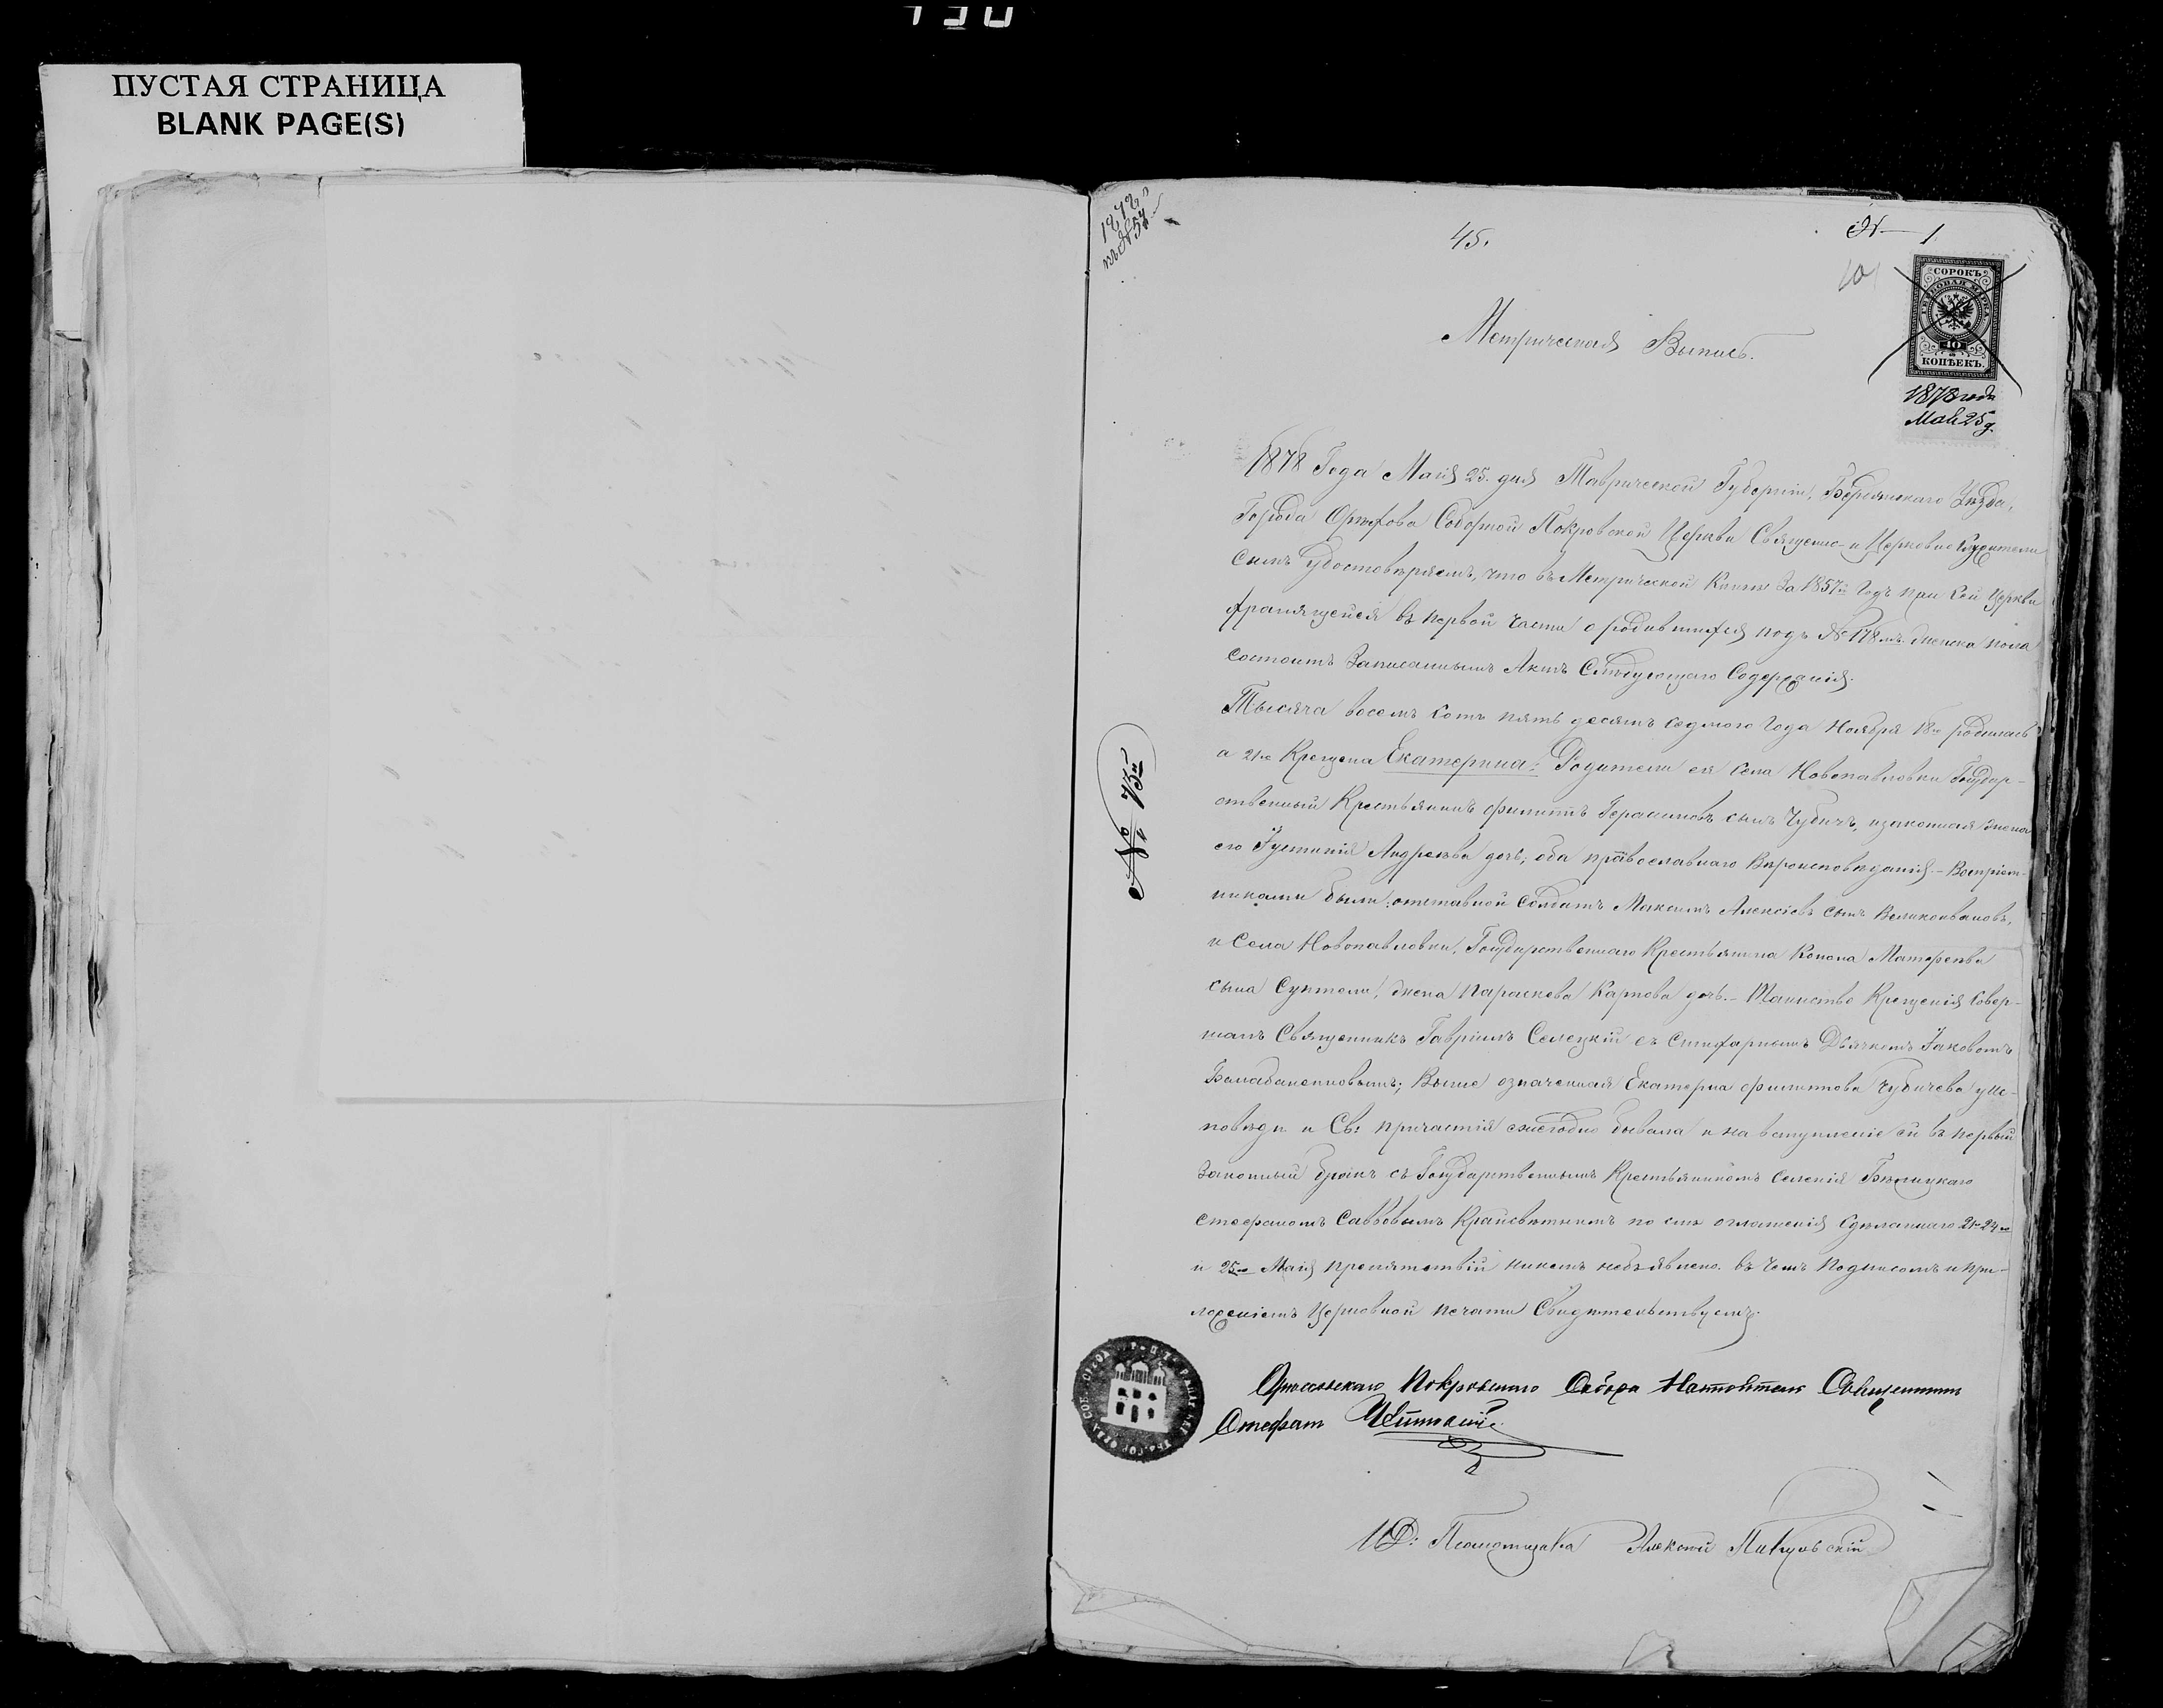 ПУСТАЯ СТРАНИЦА
BLANK PAGE(S)
1878
къ № 54
45.
№ 1
СОРОКЪ
ГЕРБОВАЯ МАРКА
40
КОПѢЕКЪ.
1878 года
Мая 25 д.
Метрическая Выпись.
1878 Года Маія 25. дня Таврической Губерніи, Бердянскаго Уѣзда,
Города Орѣхова Соборной Покровской Церкви Священно- и Церковно Служители
симъ удостовѣряемъ, что въ Метрической Книгѣ За 1857й Годъ при сей Церкви
хранящейся въ первой части о родившихся подъ № 178мъ женска пола
состоитъ Записаннымъ Актъ Слѣдующаго Содержанія.
Тысяча восемъ сотъ пять десятъ седмого Года Ноября 18го родилась
а 21го Крещена Екатерина: Родители ея Села Новопавловки Государ-
ственный Крестьянинъ Филиппъ Герасимовъ сынъ Чубичъ, и законная жена
его Іустинія Андреева дочь; оба православнаго Вѣроисповѣданія.- Воспріем-
никами были: отставной Солдатъ Максимъ Алексіевъ сынъ Великоивановъ,
и Села Новопавловки, Государственнаго Крестьянина Конона Матфеева
сына Суптели, жена Параскева Карпова дочь.- Таинство Крещенія Совер-
шалъ Священникъ Гавріилъ Селецкій съ Стихарнымъ Дьячкомъ Іаковомъ
Балабаненковымъ; Выше означенная Екатерна Филиппова Чубичева у Ис-
повѣди и Св: Причастія ежегодно бывала и на вступленіе ей въ первый
Законный бракъ съ Государственнымъ Крестьяниномъ селенія Бѣлицкаго
Стефаномъ Саввовымъ Крайсвѣтнимъ по сил оглашенія Сдѣланнаго 21го 24го
и 25го Маія препятствій никемъ необъявлено. въ Чемъ Подписомъ и при-
ложеніемъ Церковной печати Свидѣтельствуемъ.
№ 75й
Орѣховскаго Покровскаго Собора Настоятель Священникъ
Стефанъ
И.Д: Псаломщика Алексій Пикульскій